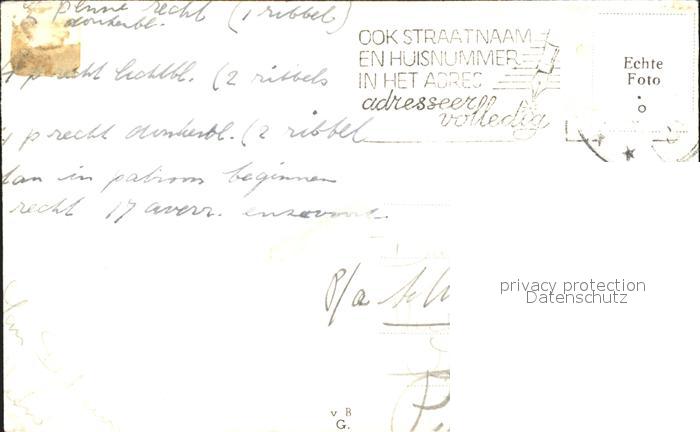 penne recht (1 ribbel)
donkerbl.
OOK STRAATNAAM
EN HUISNUMMER
IN HET ADRES
adresseer
volledig
Echte
Foto
4 p recht lichtbl. (2 ribbels
4 p recht donkerbl. (2 ribbel
dan in patroon beginnen
recht 17 averr. enzovoort.
privacy protection
Datenschutz
P/a
v B
G.